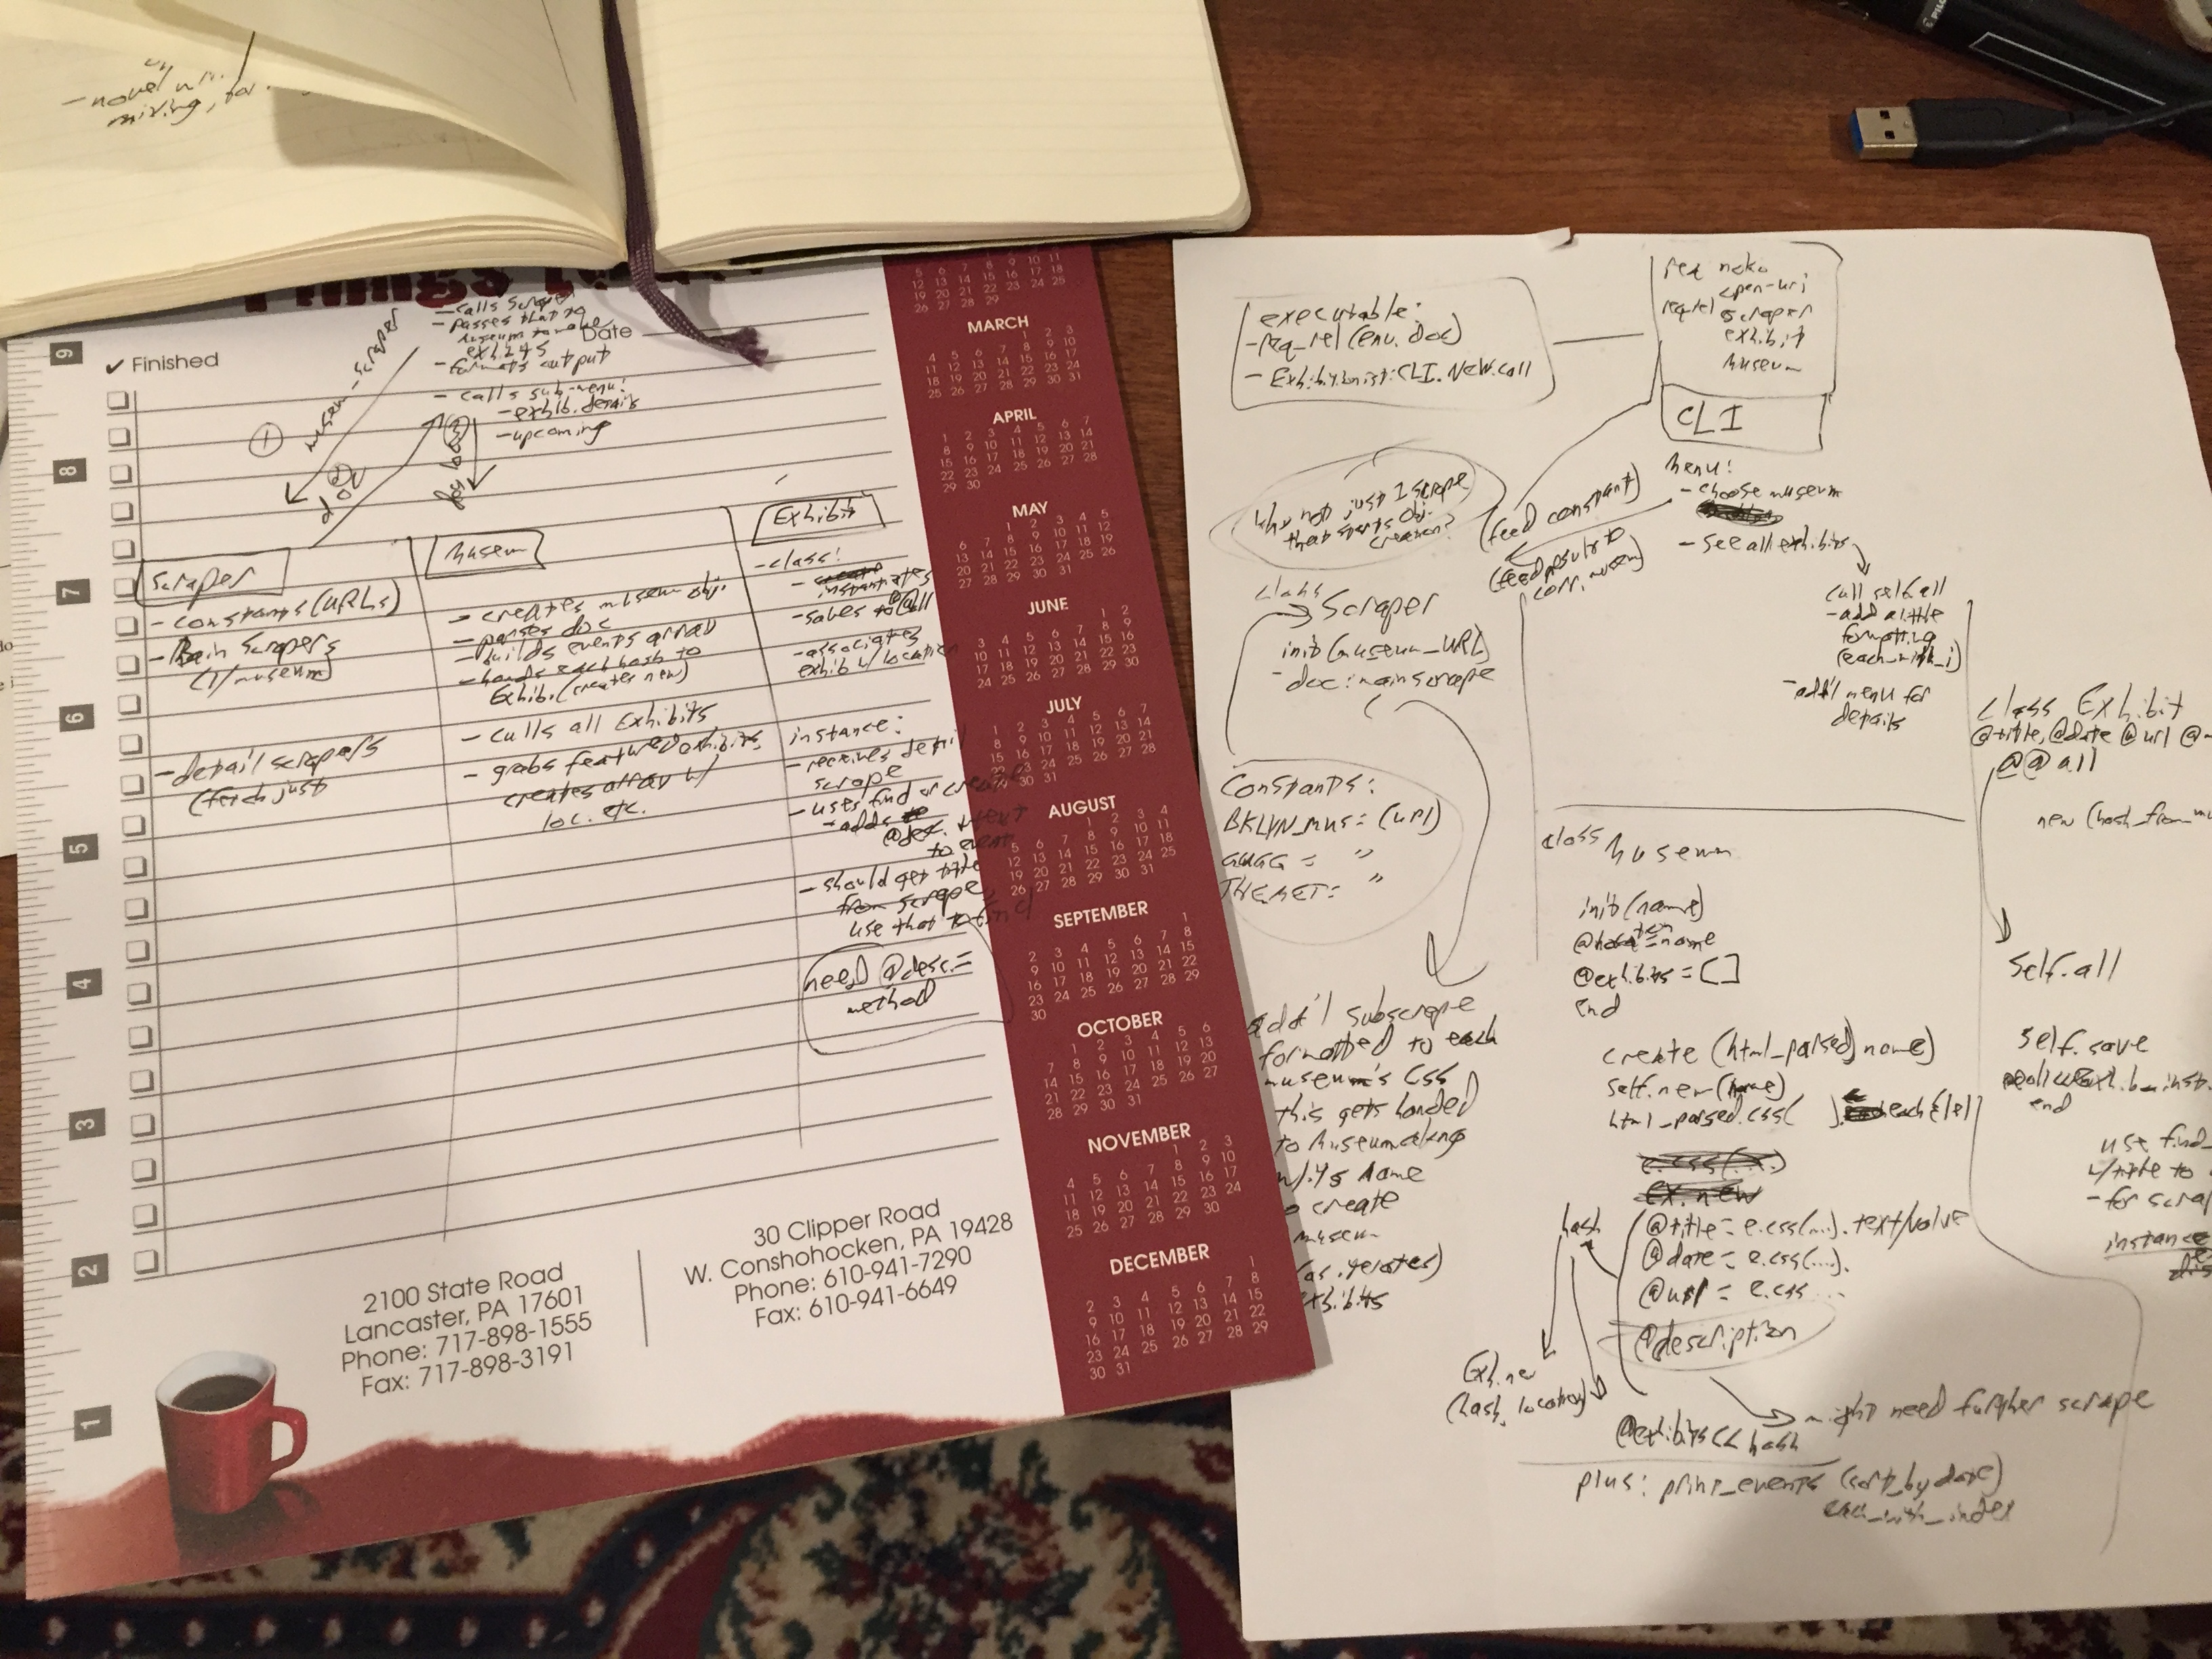 - novel
mixing, for
Things
- calls scraper
- passes that to
museum to make
exhibits
Date
- formats output
- calls sub-menu:
- exhib. details
- upcoming
✓ Finished
1
museum-scraper
2
doc
Scraper
- constants (URLs)
- Main Scrapers
(1/museum)
- detail scrapers
(fetch just
Museum
- creates museum obj.
- parses doc
- builds events array
- hands each hash to
Exhib. (creates new)
- calls all Exhibits
- grabs featured exhibits,
creates array w/
loc. etc.
Exhibit
- class:
- create
instantiates
- saves to @@all
- associates
exhib w/ location
instance:
- receives detail
scrape
- uses find or create
- adds
@desc. + text
to event
- should get title
from scrape,
use that to find
need @desc.=
method
9
8
7
6
5
4
3
2
1
2100 State Road
Lancaster, PA 17601
Phone: 717-898-1555
Fax: 717-898-3191
30 Clipper Road
W. Conshohocken, PA 19428
Phone: 610-941-7290
Fax: 610-941-6649
5 6 7 8 9 10 11
12 13 14 15 16 17 18
19 20 21 22 23 24 25
26 27 28 29
MARCH
1 2 3
4 5 6 7 8 9 10
11 12 13 14 15 16 17
18 19 20 21 22 23 24
25 26 27 28 29 30 31
APRIL
1 2 3 4 5 6 7
8 9 10 11 12 13 14
15 16 17 18 19 20 21
22 23 24 25 26 27 28
29 30
MAY
1 2 3 4 5
6 7 8 9 10 11 12
13 14 15 16 17 18 19
20 21 22 23 24 25 26
27 28 29 30 31
JUNE
1 2
3 4 5 6 7 8 9
10 11 12 13 14 15 16
17 18 19 20 21 22 23
24 25 26 27 28 29 30
JULY
1 2 3 4 5 6 7
8 9 10 11 12 13 14
15 16 17 18 19 20 21
22 23 24 25 26 27 28
29 30 31
AUGUST
1 2 3 4
5 6 7 8 9 10 11
12 13 14 15 16 17 18
19 20 21 22 23 24 25
26 27 28 29 30 31
SEPTEMBER
1
2 3 4 5 6 7 8
9 10 11 12 13 14 15
16 17 18 19 20 21 22
23 24 25 26 27 28 29
30
OCTOBER
1 2 3 4 5 6
7 8 9 10 11 12 13
14 15 16 17 18 19 20
21 22 23 24 25 26 27
28 29 30 31
NOVEMBER
1 2 3
4 5 6 7 8 9 10
11 12 13 14 15 16 17
18 19 20 21 22 23 24
25 26 27 28 29 30
DECEMBER
1
2 3 4 5 6 7 8
9 10 11 12 13 14 15
16 17 18 19 20 21 22
23 24 25 26 27 28 29
30 31
executable:
- req_rel (env. doc)
- Exhibitionist::CLI.new.call
req noko
open-uri
req rel scraper
exhibit
museum
CLI
Menu:
- choose museum
- see all exhibits
(feed constant)
(feed results to
corr. museum)
Why not just 1 scrape
that starts obj.
creation?
call self.all
- add a little
formatting
(each_with_i)
- add'l menu for
details
class Scraper
init (museum_URL)
- doc: main scrape
Constants:
BKLYN_MUS = (url)
GUGG = "
THEMET = "
add'l subscrape
formatted to each
museum's css
this gets handed
to museum along
w/ its name
to create
museum
(as iterates)
exhibits
class Museum
init (name)
@location = name
@exhibits = []
end
create (html_parsed, name)
self.new (name)
html_parsed.css( ).each {|e|
e.css(...)
ex. new
hash
@title = e.css(...).text/value
@date = e.css(....).
@url = e.css ...
@description
might need further scrape
Exh.new
(hash, location)
@exhibits << hash
plus: print_events (sort_by date)
each_with_index
class Exhibit
@title, @date @url @
@@all
new (hash_from_mu
self.all
self.save
end
use find_
w/title to
- for scrap
instance
PILOT